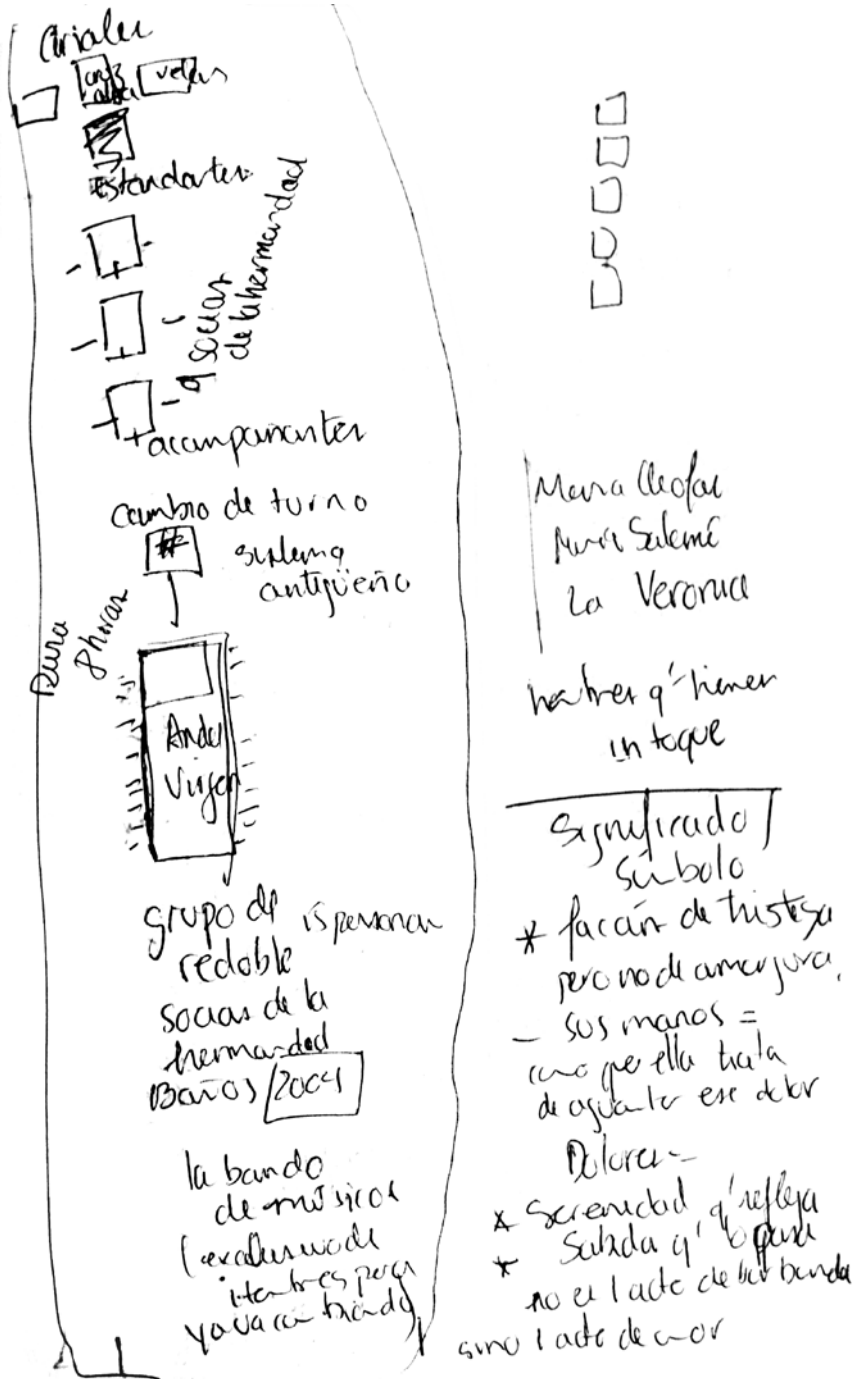 Ciriales
cruz
alta
velas
estandartes
socias
de la hermandad
acompañantes
cambio de turno
sistema
antigüeño
Dura
8 horas
Anda
Virgen
grupo de
redoble
15 personas
socias de la
hermandad
Baños 2004
la banda
de músicos
hombres pero
ya va cambiando
Maria Cleofas
Maria Salomé
La Veronica
hombres q' tienen
un toque
Significado /
Símbolo
* facción de tristeza
pero no de amargura.
- sus manos =
como que ella trata
de aguantar ese dolor
Dolores -
* Serenidad q' refleja
* Salida q'
no es 1 acto de banda
sino 1 acto de amor